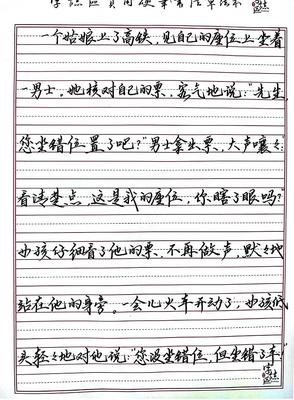 一个姑娘上了高铁,见自己的座位上坐着
一男士。她核对自己的票,客气地说:"先生,
您坐错位置了吧?"男士拿出票,大声嚷々:
看清楚点,这是我的座位,你瞎了眼吗?"
女孩仔细看了他的票,不再做声,默々地
站在他的身旁。一会儿火车开动了,女孩低
头轻々地对他说:"您没坐错位,但坐错了车!"